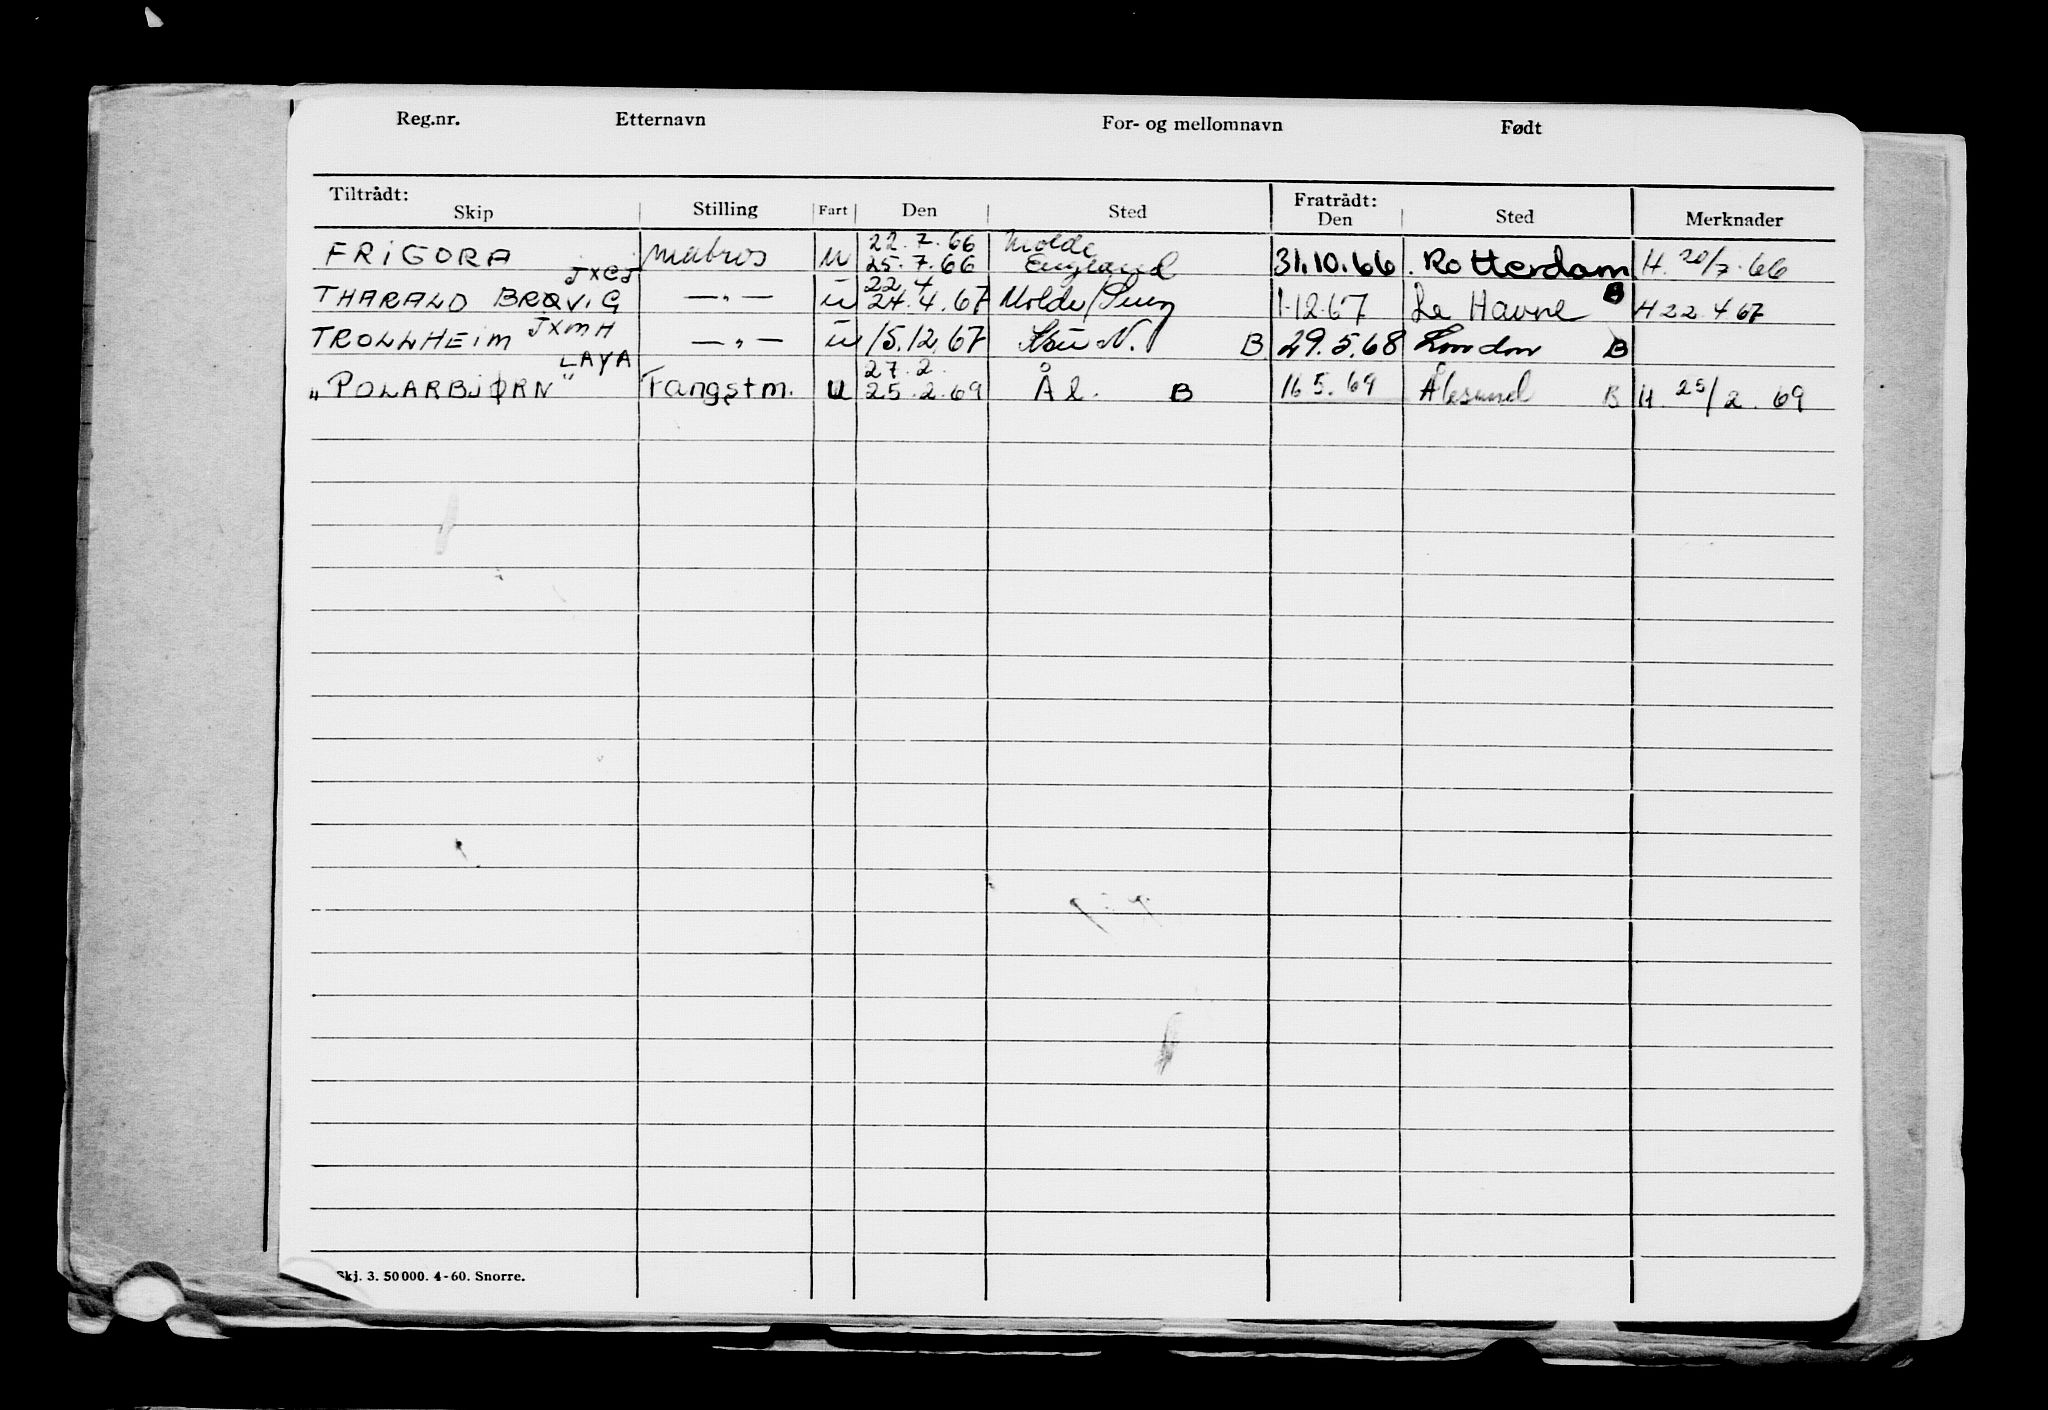 Reg.nr. Etternavn For- og mellomnavn Født
Tiltrådt: Fratrådt:
Skip Stilling Fart Den Sted Den Sted Merknader
22.7.66 Molde
FRIGORA Matros u 25.7.66 England 31.10.66 Rotterdam H. 20/7.66
JXCJ 22 4
THARALD BRØVIG — " — u 24.4.67 Molde/ 1-12.67 Le Havre B H 22.4 67
JXMH
TROLLHEIM — " — u 15.12.67 B 29.5.68 London B
LAYA 27.2.
"POLARBJØRN" Fangstm. u 25.2.69 Ål. B 16 5.69 Ålesund B H. 25/2.69
Skj. 3. 50000. 4-60. Snorre.